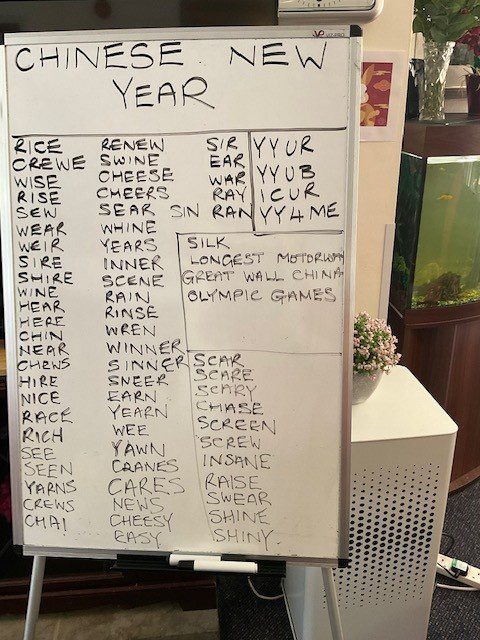 CHINESE NEW
YEAR
RICE
CREWE
WISE
RISE
SEW
WEAR
WEIR
SIRE
SHIRE
WINE
HEAR
HERE
CHIN
NEAR
CHEWS
HIRE
NICE
RACE
RICH
SEE
SEEN
YARNS
CREWS
CHAI
RENEW
SWINE
CHEESE
CHEERS
SEAR
WHINE
YEARS
INNER
SCENE
RAIN
RINSE
WREN
WINNER
SINNER
SNEER
EARN
YEARN
WEE
YAWN
CRANES
CARES
NEWS
CHEESY
EASY
SIR
EAR
WAR
RAY
SIN RAN
YYUR
YYUB
ICUR
YY4ME
SILK
LONGEST MOTORWAY
GREAT WALL CHINA
OLYMPIC GAMES
SCAR
SCARE
SCARY
CHASE
SCREEN
SCREW
INSANE
RAISE
SWEAR
SHINE
SHINY